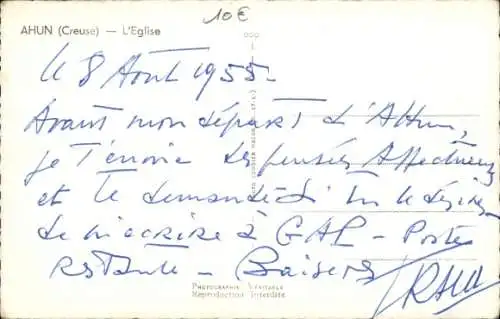 10€
AHUN (Creuse) — L'Eglise
le 8 Août 1955.
Avant mon départ d'Ahun,
je t'envoie des pensées affectueuses
et te demande si tu le désires
de m'écrire à GAP - Poste
Restante - Baisers
PHOTOGRAPHIE VÉRITABLE
Reproduction Interdite